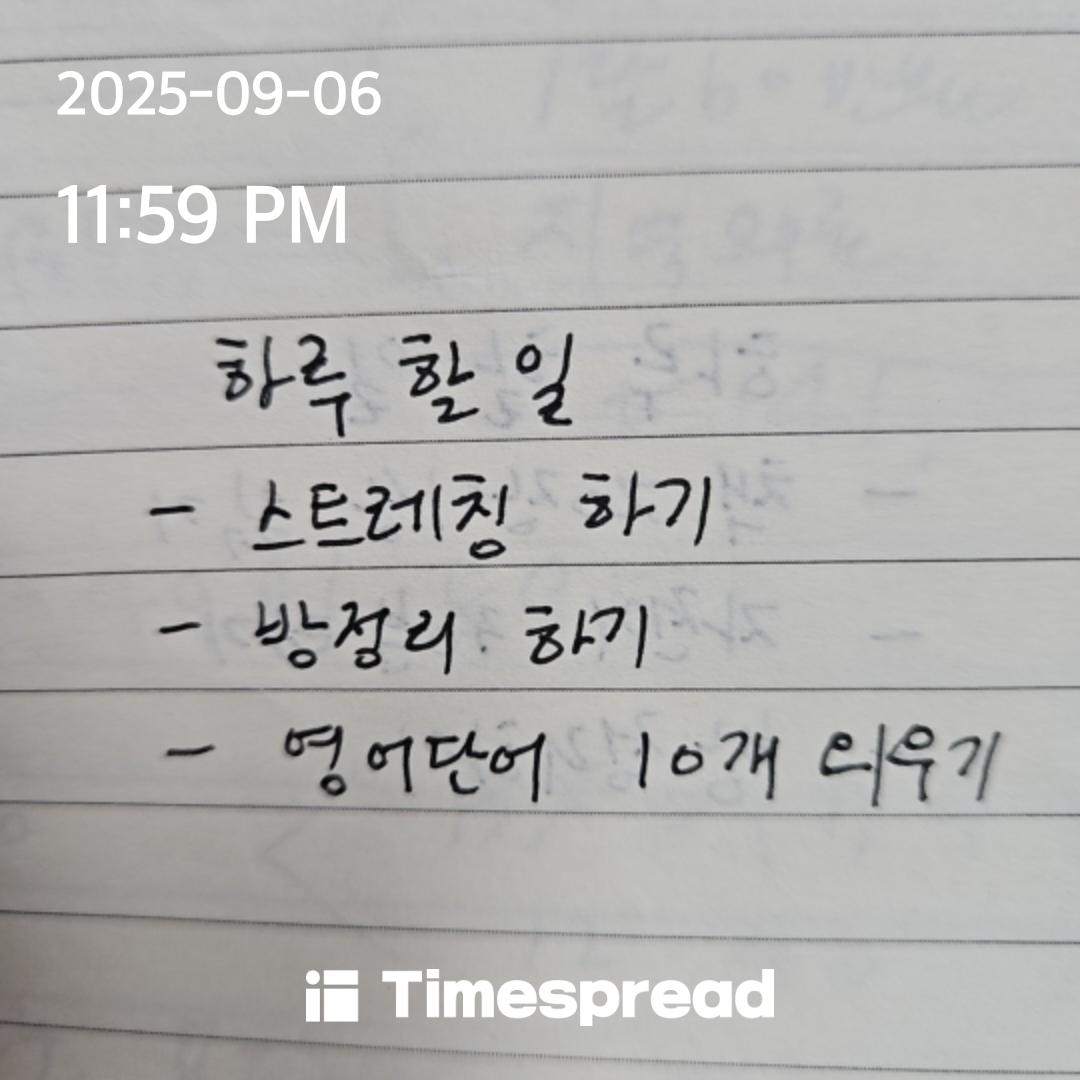 2025-09-06
11:59 PM
하루 할 일
- 스트레칭 하기
- 방정리 하기
- 영어단어 10개 외우기
Timespread